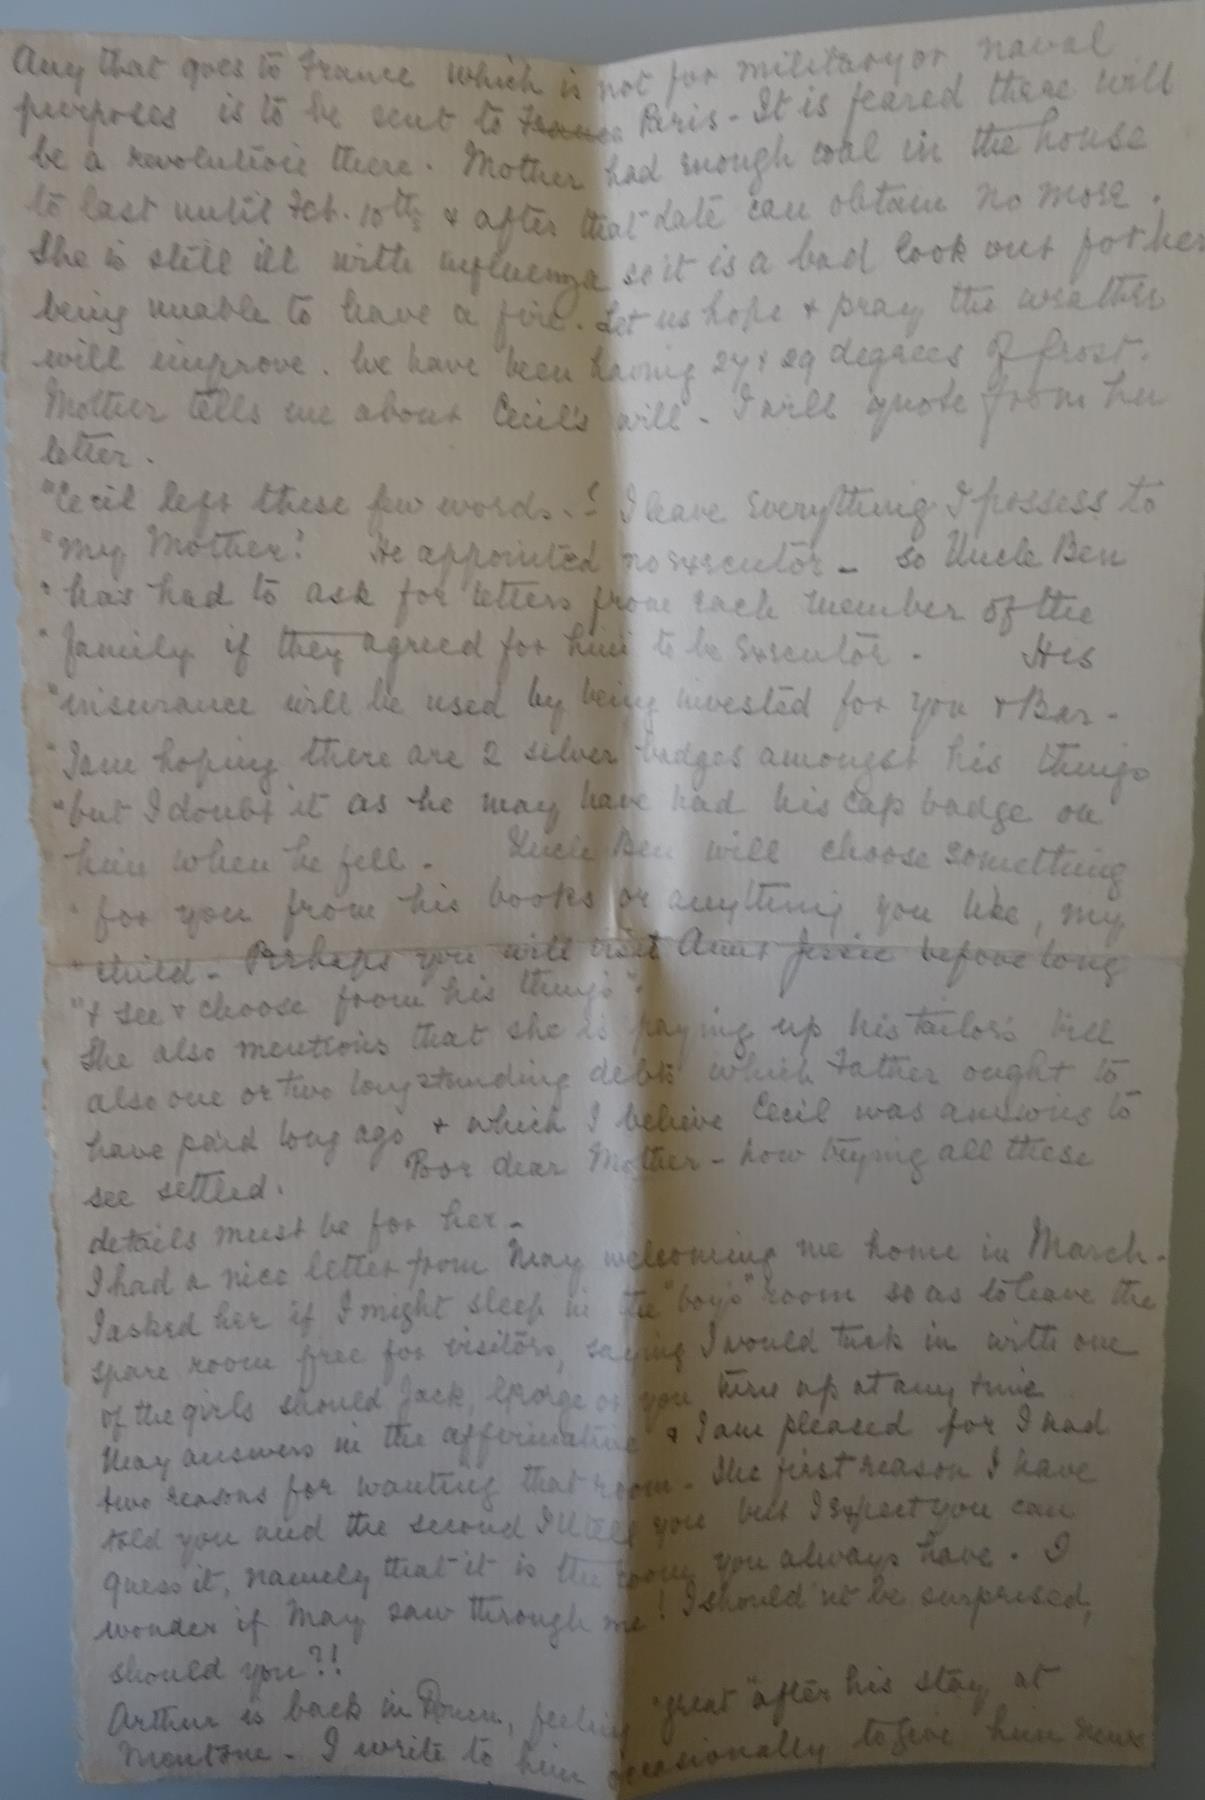 Any that goes to France which is not for military or naval
purposes is to be sent to France Paris - It is feared there will
be a revolution there. Mother had enough coal in the house
to last until Feb. 10th & after that date can obtain no more.
She is still ill with influenza so it is a bad look out for her
being unable to have a fire. Let us hope & pray the weather
will improve. We have been having 27 & 29 degrees of frost.
Mother tells me about Cecil's will - I will quote from her
letter.
"Cecil left these few words. - 'I leave everything I possess to
"my Mother'. He appointed no executor - so Uncle Ben
" has had to ask for letters from each member of the
" family if they agreed for him to be executor. His
"insurance will be used by being invested for you & Bar -
"I am hoping there are 2 silver badges amongst his things
"but I doubt it as he may have had his cap badge on
him when he fell. - Uncle Ben will choose something
" for you from his books or anything you like, my
" child - Perhaps you will visit Aunt Jessie before long
"& see & choose from his things".
She also mentions that she is paying up his tailor's bill
also one or two longstanding debts which Father ought to
have paid long ago & which I believe Cecil was anxious to
see settled. Poor dear Mother - how trying all these
details must be for her -
I had a nice letter from May welcoming me home in March -
I asked her if I might sleep in the "boy's" room so as to leave the
spare room free for visitors, saying I would tuck in with one
of the girls should Jack, George or you turn up at any time
May answers in the affirmative & I am pleased for I had
two reasons for wanting that room - The first reason I have
told you and the second I'll tell you but I expect you can
guess it, namely that it is the room you always have. I
wonder if May saw through me! I should n't be surprised,
should you?!!
Arthur is back in , feeling "great" after his stay at
Mentone - I write to him occasionally to give him news